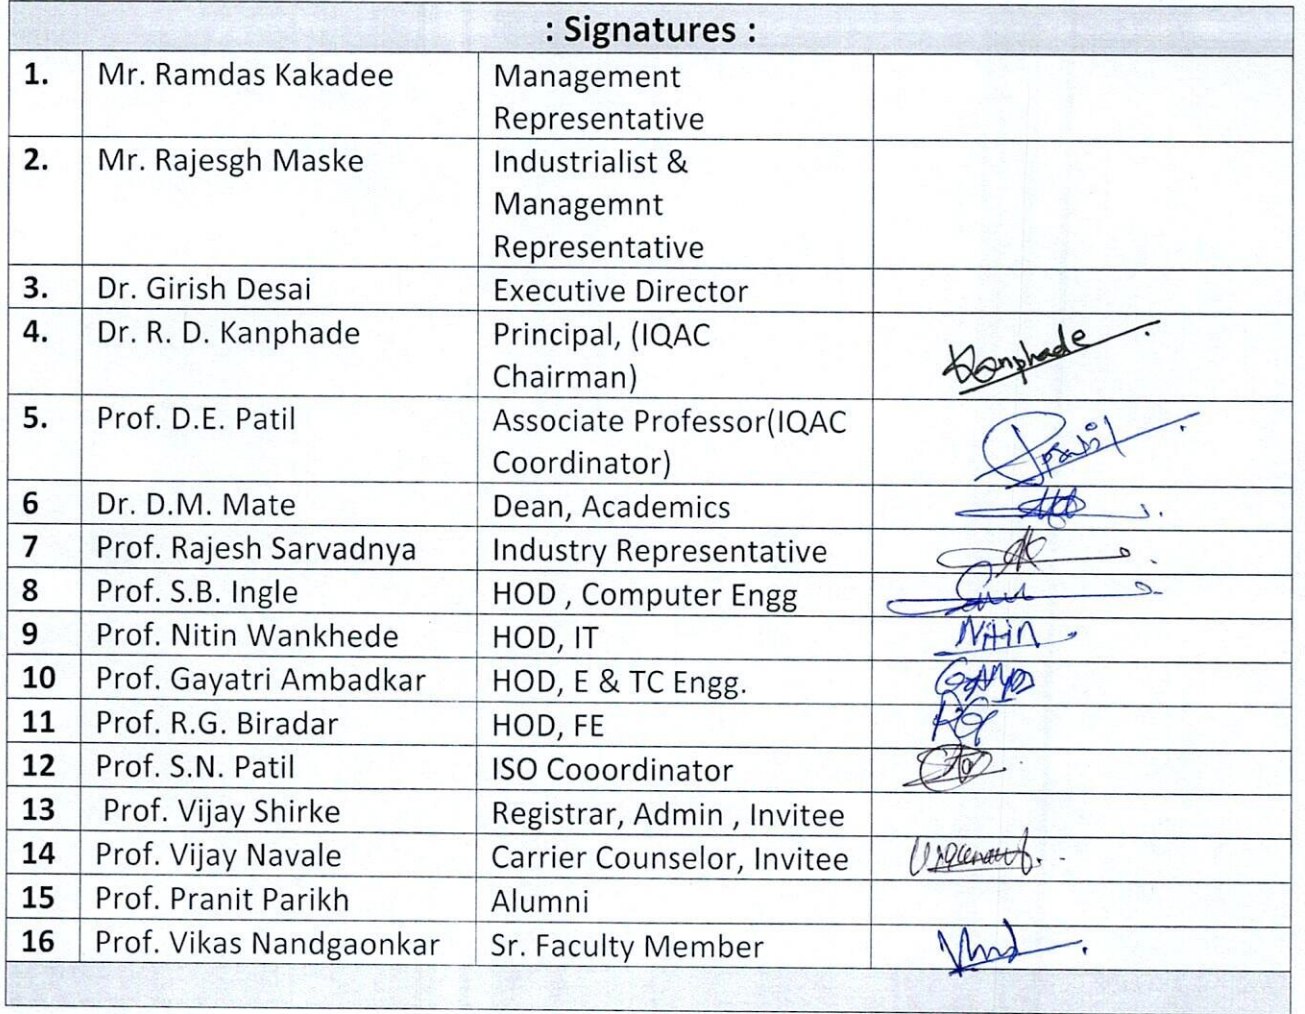 : Signatures :
1. Mr. Ramdas Kakadee Management
Representative
2. Mr. Rajesgh Maske Industrialist &
Managemnt
Representative
3. Dr. Girish Desai Executive Director
4. Dr. R. D. Kanphade Principal, (IQAC
Chairman) Kanphade
5. Prof. D.E. Patil Associate Professor(IQAC
Coordinator)
6 Dr. D.M. Mate Dean, Academics
7 Prof. Rajesh Sarvadnya Industry Representative
8 Prof. S.B. Ingle HOD , Computer Engg
9 Prof. Nitin Wankhede HOD, IT Nitin
10 Prof. Gayatri Ambadkar HOD, E & TC Engg.
11 Prof. R.G. Biradar HOD, FE
12 Prof. S.N. Patil ISO Cooordinator
13 Prof. Vijay Shirke Registrar, Admin , Invitee
14 Prof. Vijay Navale Carrier Counselor, Invitee
15 Prof. Pranit Parikh Alumni
16 Prof. Vikas Nandgaonkar Sr. Faculty Member